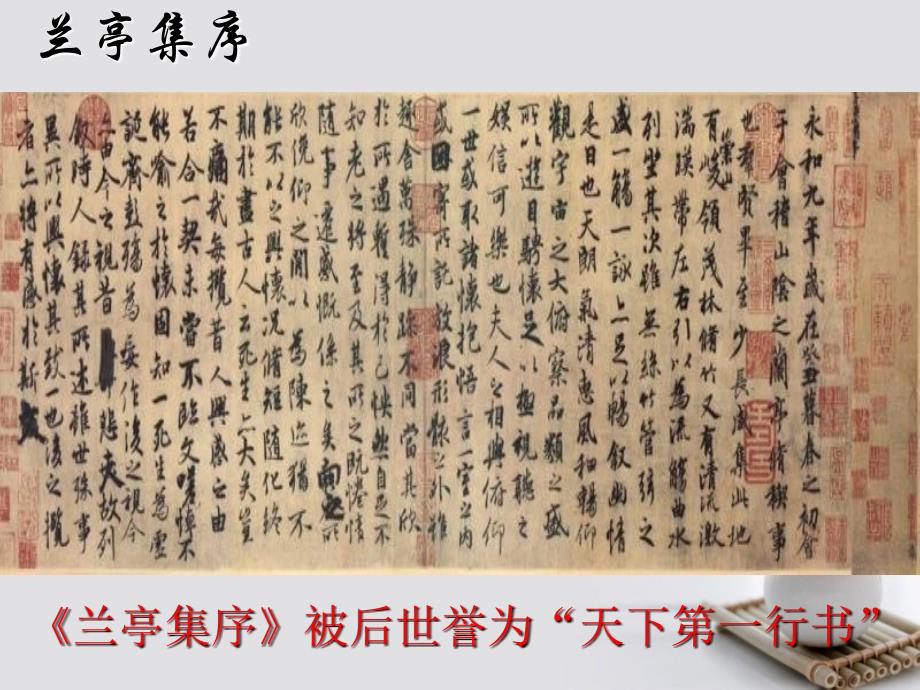 兰亭集序
永和九年歲在癸丑暮春之初會
于會稽山陰之蘭亭脩稧事
也群賢畢至少長咸集此地
有崇山峻領茂林脩竹又有清流激
湍暎帶左右引以為流觴曲水
列坐其次雖無絲竹管弦之
盛一觴一詠亦足以暢敘幽情
是日也天朗氣清惠風和暢仰
觀宇宙之大俯察品類之盛
所以遊目騁懷足以極視聽之
娛信可樂也夫人之相與俯仰
一世或取諸懷抱悟言一室之內
或因寄所託放浪形骸之外雖
趣舍萬殊靜躁不同當其欣
於所遇暫得於己怏然自足不
知老之將至及其所之既惓情
隨事遷感慨係之矣向之所
欣俛仰之閒以為陳迹猶不
能不以之興懷況脩短隨化終
期於盡古人云死生亦大矣豈
不痛哉每攬昔人興感之由
若合一契未嘗不臨文嗟悼不
能喻之於懷固知一死生為虛
誕齊彭殤為妄作後之視今
亦由今之視昔悲夫故列
敘時人錄其所述雖世殊事
異所以興懷其致一也後之攬
者亦將有感於斯文
《兰亭集序》被后世誉为“天下第一行书”